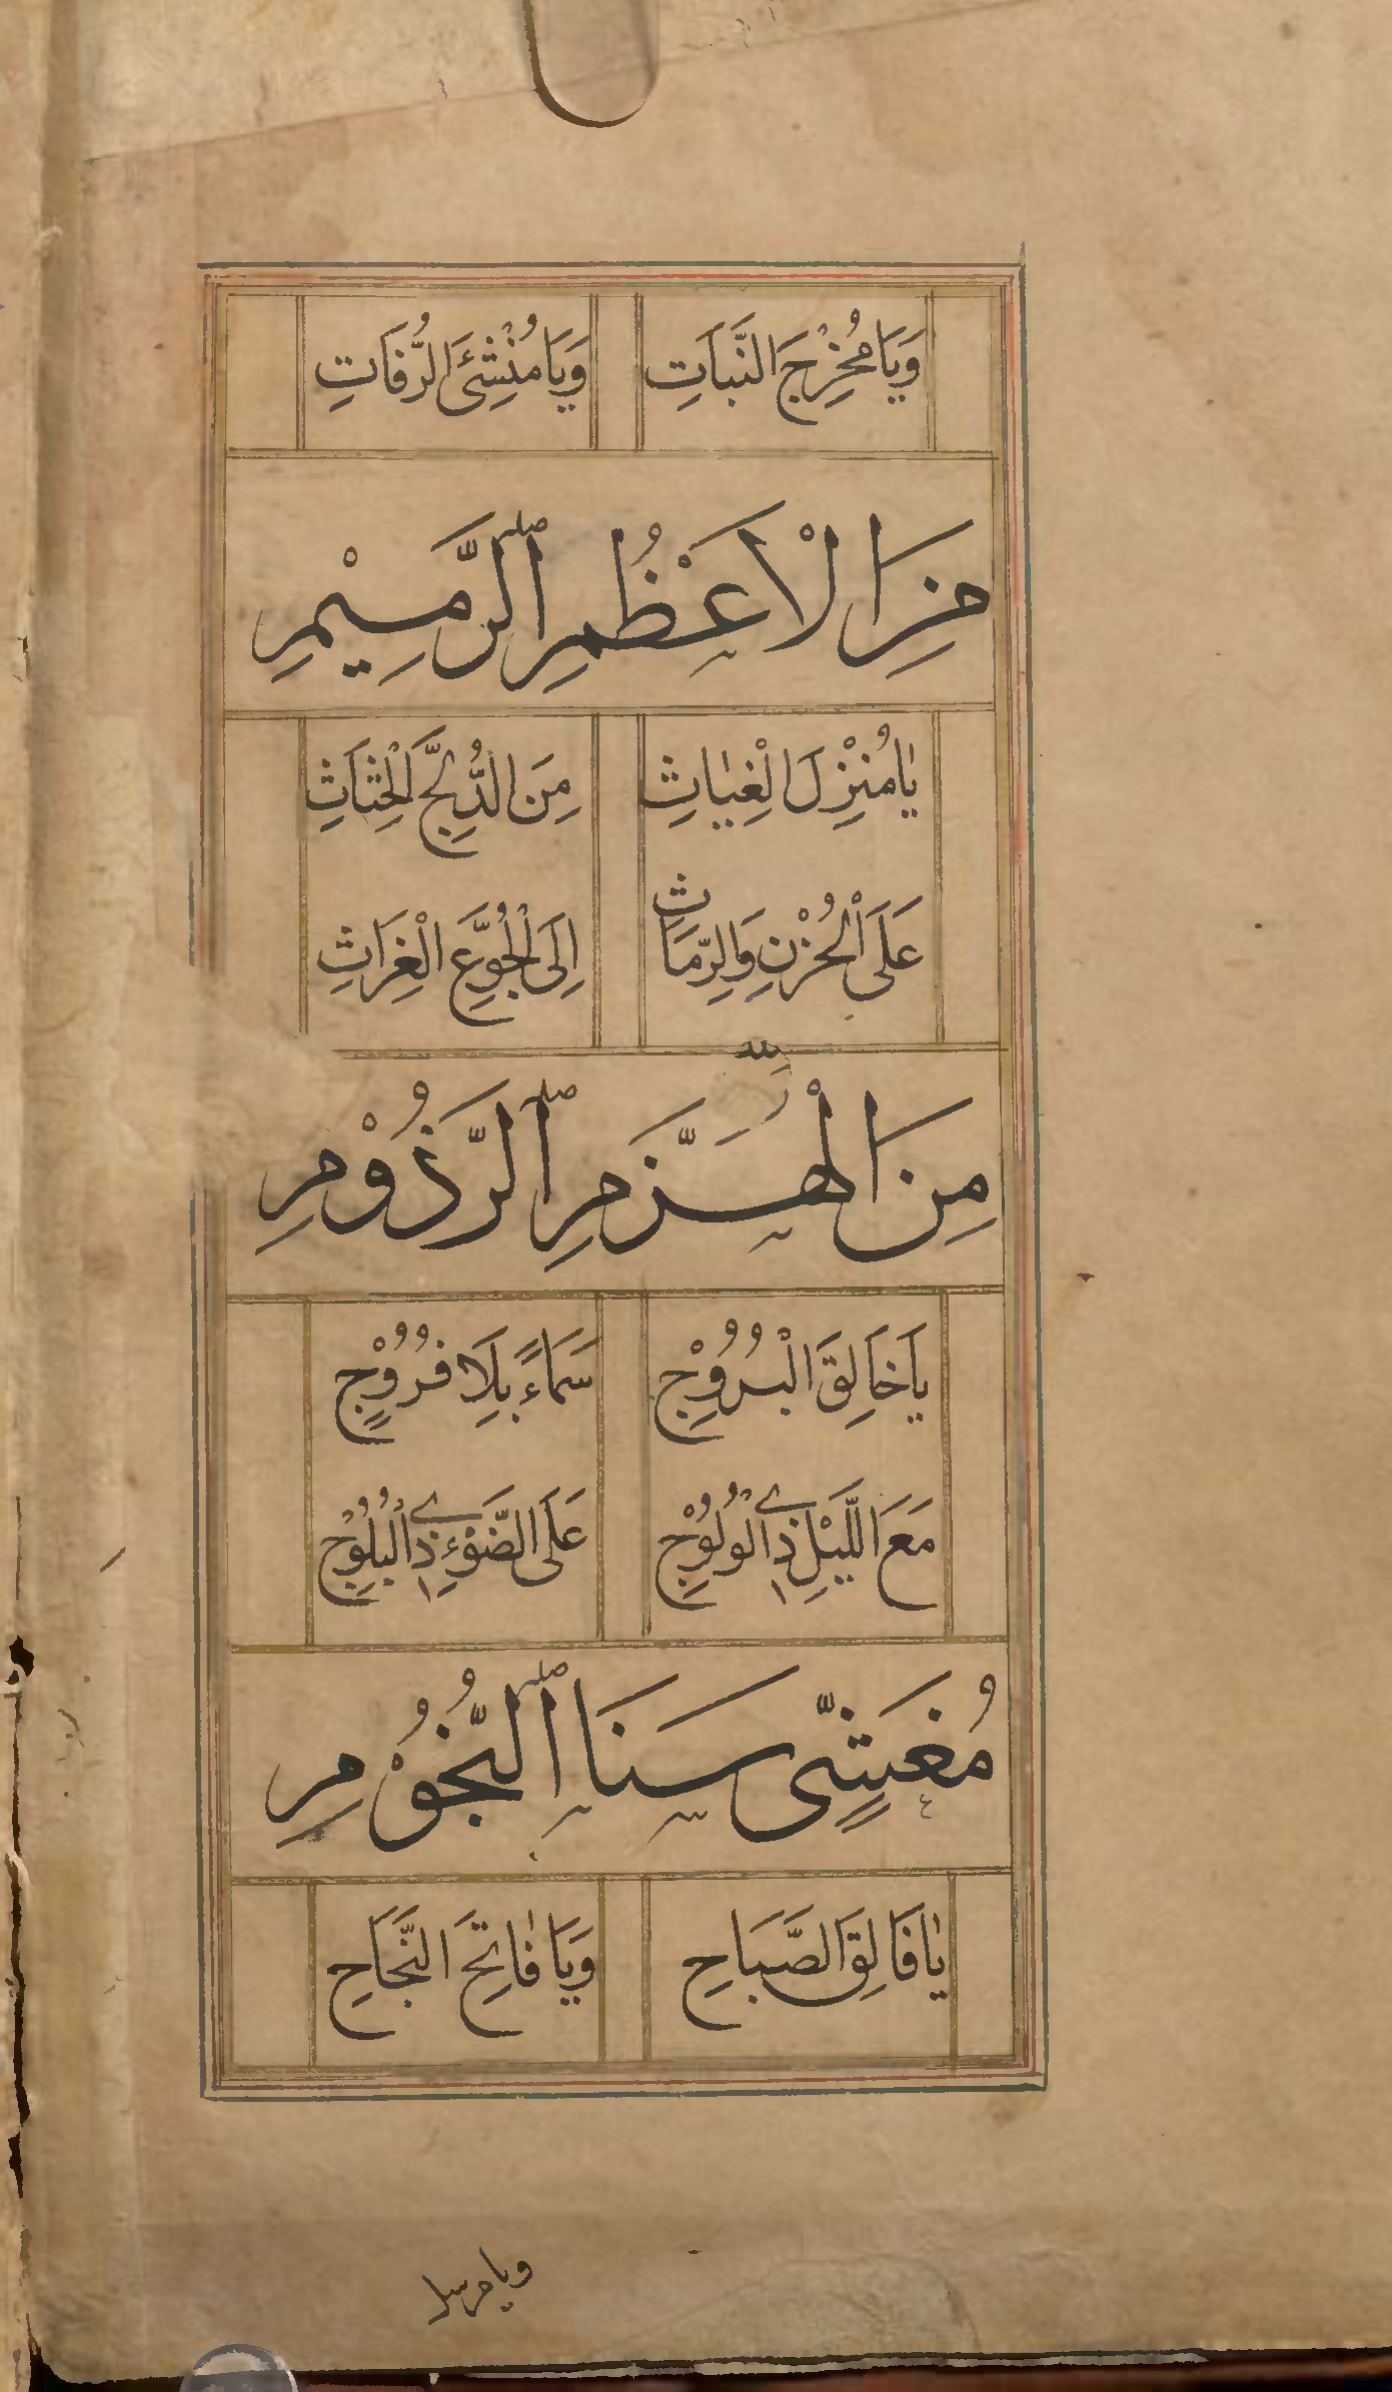 وَيَا مُخْرِجَ النَّبَاتِ وَيَا مُنْشِئَ الرُّفَاتِ
مِنَ الْاَعْظُمِ الرَّمِيْمِ
يَا مُنْزِلَ الْغِيَاثِ مِنَ الدُّلَّجِ الْحِثَاثِ
عَلَى الْحُزْنِ وَالرِّمَاثِ اِلَى الْجُوَّعِ الْغِرَاثِ
مِنَ الْهُزَّمِ الرَّذُوْمِ
يَا خَالِقَ الْبُرُوْجِ سَمَاءً بِلَا فُرُوْجٍ
مَعَ اللَّيْلِ ذِي الْوُلُوْجِ عَلَى الضَّوْءِ ذِي الْبُلُوْجِ
مُغَشِّي سَنَا النُّجُوْمِ
يَا فَالِقَ الصَّبَاحِ وَيَا فَاتِحَ النَّجَاحِ
ويا مرسل